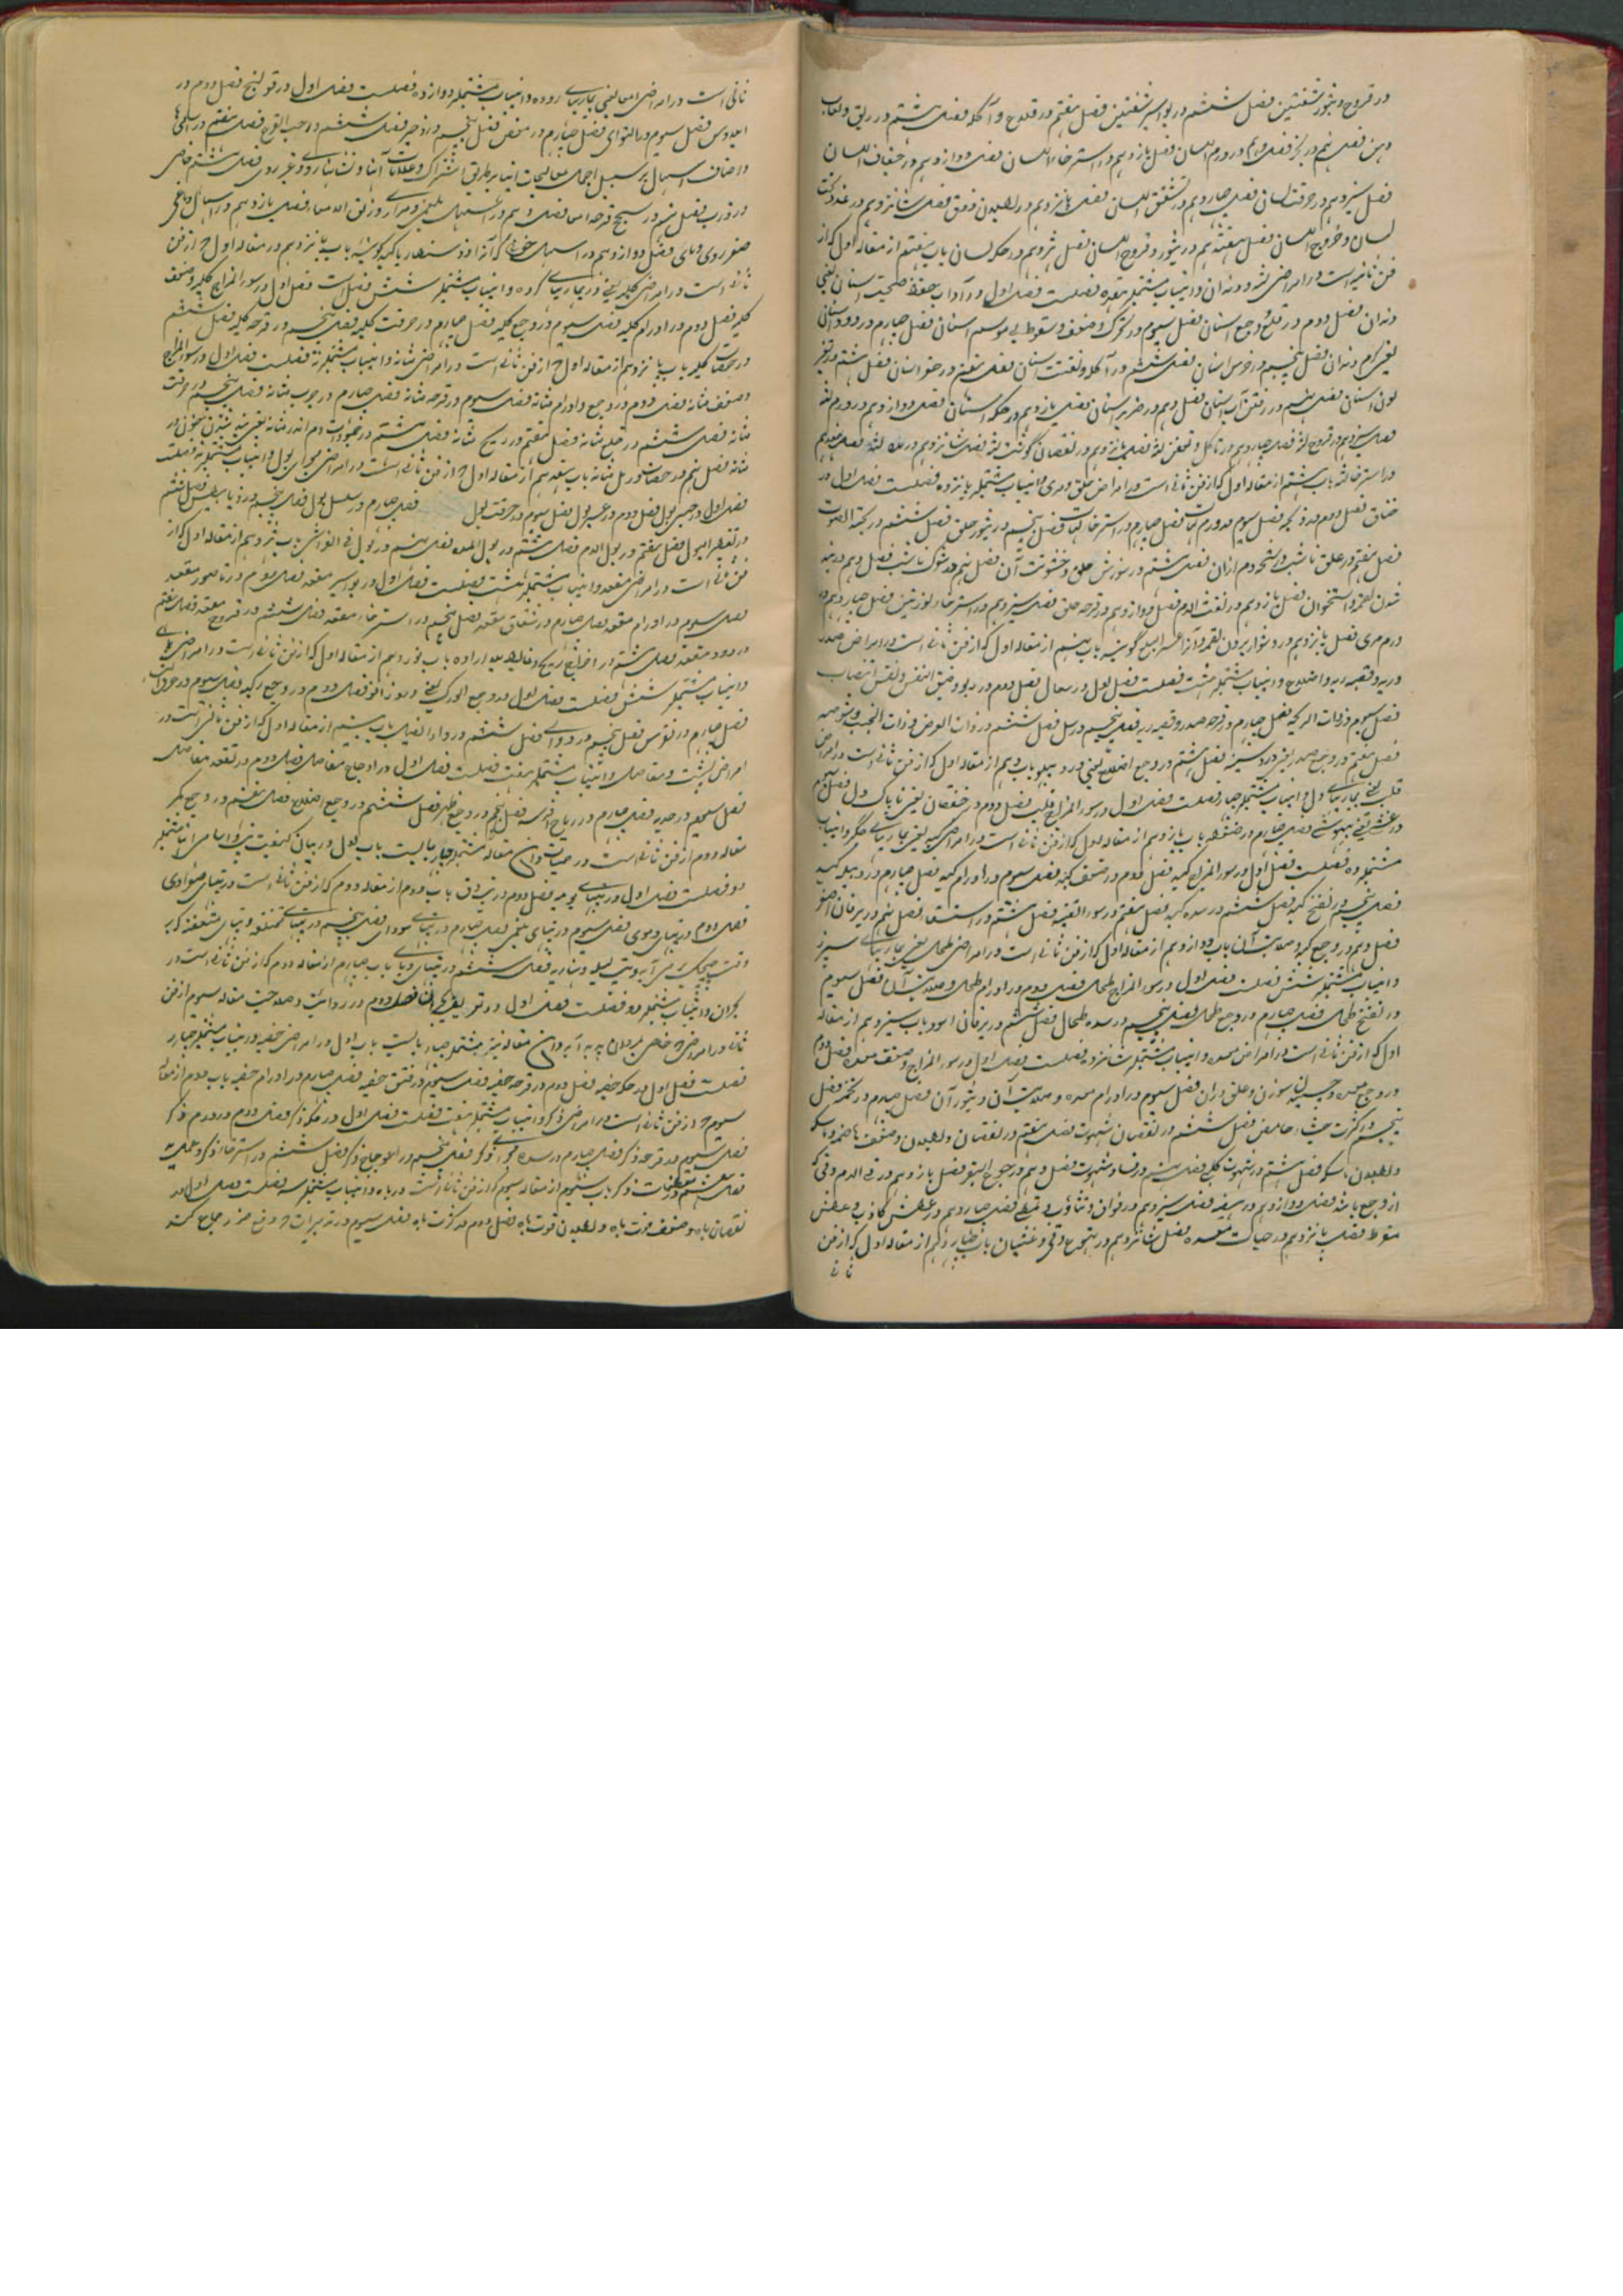 در قروح و بثور شفتین فصل ششم در بواسیر شفتین فصل هفتم در قلاع و آکله فصل هشتم در ریق و لعاب
دهن فصل نهم در بخر فصل دهم در ورم اللسان فصل یازدهم در استرخاء اللسان فصل دوازدهم در جفاف اللسان
فصل سیزدهم در حرقت لسان فصل چهاردهم در تشقق اللسان فصل پانزدهم در بطلان ذوق فصل شانزدهم در
لسان و خروج اللسان فصل هفدهم در بثور و قروح اللسان فصل هژدهم در حکه لسان باب هفتم از مقاله اول که از
فن ثانیه است در امراض لثه و دندان و اینباب مشتملبر فصلست فصل اول در آداب حفظ صحت اسنان یعنی
دندان فصل دوم در قلع و وجع اسنان فصل سیوم در تحرک و ضعف و سقوط بی موسم اسنان فصل چهارم در دود اسنان
یعنی کرم دندان فصل پنجم در ضرس اسنان فصل ششم در تآکل و تفتت اسنان فصل هفتم در حفر اسنان فصل هشتم در تغیر
لون اسنان فصل نهم در رفتن آب اسنان فصل دهم در صریر اسنان فصل یازدهم در حکه اسنان فصل دوازدهم در ورم لثه
فصل سیزدهم در قروح لثه فصل چهاردهم در تآکل و تعفن لثه فصل پانزدهم در نقصان گوشت لثه فصل شانزدهم در لثه فصل هفدهم
در استرخاء لثه باب هشتم از مقاله اول که از فن ثانی است در امراض حلق و مری و اینباب مشتملبر پانزده فصلست فصل اول در
خناق فصل دوم در ذبحه فصل سیوم در ورم لهات فصل چهارم در استرخاء لهات فصل پنجم در بثور حلق فصل ششم در بحة الصوت
فصل هفتم در علق ناشب فصل هشتم در سوزش حلق و خشونت آن فصل نهم در شوک ناشب فصل دهم در بند
شدن لقمه و استخوان فصل یازدهم در نفث الدم فصل دوازدهم در قرحه حلق فصل سیزدهم در استرخاء لوزتین فصل چهاردهم در
ورم مری فصل پانزدهم در دشوار بردن لقمه و آنرا عسر البلع گویند باب نهم از مقاله اول که از فن ثانی است در امراض صدر
و ریه و قصبه ریه و اضلاع و اینباب مشتملبر هشت فصلست فصل اول در سعال فصل دوم در ربو و ضیق النفس و نفس انتصاب
فصل سیوم در ذات الریه فصل چهارم در قرحه صدر و قصبه ریه فصل پنجم در سل فصل ششم در ذات العرض و ذات الجنب و شوصه
فصل هفتم در وجع صدر یعنی درد سینه فصل هشتم در وجع اضلاع یعنی درد پهلو باب دهم از مقاله اول که از فن ثانی است در امراض
قلب یعنی بیماریهای دل و اینباب مشتملبر چهار فصلست فصل اول در سوء المزاج قلب فصل دوم در خفقان یعنی تاپاک دل فصل سیوم
در غشی یعنی بیهوشی فصل چهارم در ضغطه باب یازدهم از مقاله اول که از فن ثانی است در امراض کبد یعنی بیماریهای جگر و اینباب
مشتملبر ده فصلست فصل اول در سوء المزاج کبد فصل دوم در ضعف کبد فصل سیوم در اورام کبد فصل چهارم در دبیله کبد
فصل پنجم در نفخ کبد فصل ششم در سده کبد فصل هفتم در سوء القنیه فصل هشتم در استسقا فصل نهم در یرقان اصفر
فصل دهم در وجع کبد و صلابت آن باب دوازدهم از مقاله اول که از فن ثانی است در امراض طحال یعنی بیماریهای سپرز
و اینباب مشتملبر شش فصلست فصل اول در سوء المزاج طحال فصل دوم در اورام طحال و صلابت آن فصل سیوم
در نفخ طحال فصل چهارم در وجع طحال فصل پنجم در سده طحال فصل ششم در یرقان اسود باب سیزدهم از مقاله
اول که از فن ثانی است در امراض معده و اینباب مشتملبر شانزده فصلست فصل اول در سوء المزاج و ضعف معده فصل دوم
در وجع معده و سوزن و علق دران فصل سیوم در اورام معده و صلابت آن و بثور آن فصل چهارم در تخمه فصل
پنجم در کثرت جشاء حامض فصل ششم در نقصان شهوت فصل هفتم در نقصان و بطلان و ضعف هاضمه
و بطلان فصل هشتم در شهوت کلبی فصل نهم در فساد شهوت فصل دهم در جوع البقر فصل یازدهم در قی الدم و قی که
از وجع باشد فصل دوازدهم در هیضه فصل سیزدهم در فواق و تثاؤب و تمطی فصل چهاردهم در عطش کاذب و عطش
مفرط فصل پانزدهم در حیات معده فصل شانزدهم در تهوع و قی و غثیان باب چهاردهم از مقاله اول که از فن
ثانی
ثانی است در امراض امعا یعنی بیماریهای روده و اینباب مشتملبر دوازده فصلست فصل اول در قولنج فصل دوم در
ایلاوس فصل سیوم در التوای فصل چهارم در مغص فصل پنجم در زحیر فصل ششم در حب القرع فصل هفتم در
و اصناف اسهال بر سبیل اجمال معالجات اینها بطریق اشتراک و علامات آنها فصل هشتم خاص
در ذرب فصل نهم در سحج و قرحه امعا فصل دهم در اسهال بلغمی و مراری و زلق الامعاء فصل یازدهم در اسهال دماغی
فصل دوازدهم در اسهال خونی که آنرا دوسنطاریا کبدی گویند باب پانزدهم در مقاله اول از فن
ثانی است در امراض کلیه یعنی در بیماریهای گرده و اینباب مشتملبر شش فصل است فصل اول در سوء المزاج کلیه و ضعف
کلیه فصل دوم در اورام کلیه فصل سیوم در وجع کلیه فصل چهارم در حرقت کلیه فصل پنجم در قرحه کلیه فصل ششم
در حصات کلیه باب شانزدهم از مقاله اول از فن ثانی است در امراض مثانه و اینباب مشتملبر نه فصلست فصل اول در سوء المزاج
و ضعف مثانه فصل دوم در وجع و اورام مثانه فصل سیوم در قرحه مثانه فصل چهارم در جرب مثانه فصل پنجم در حرقت
مثانه فصل ششم در خلع مثانه فصل هفتم در ریح مثانه فصل هشتم در جمود دم اندر مثانه یعنی بسته شدن خون در
مثانه فصل نهم در حصات و رمل مثانه باب هفدهم از مقاله اول از فن ثانی است در امراض بول و اینباب مشتملبر نه فصلست
فصل اول در حبس بول فصل دوم در عسر بول فصل سیوم در حرقت بول فصل چهارم در سلس بول فصل پنجم در ذیابیطس فصل ششم
در تقطیر البول فصل هفتم در بول الدم فصل هشتم در بول المده فصل نهم در بول فی الفراش باب هژدهم از مقاله اول که از
فن ثانی است در امراض مقعد و اینباب مشتملبر هشت فصلست فصل اول در بواسیر مقعد فصل دوم در ناصور مقعد
فصل سیوم در اورام مقعد فصل چهارم در شقاق مقعد فصل پنجم در استرخاء مقعد فصل ششم در قروح مقعد فصل هفتم
در درد مقعد فصل هشتم در اخراج ریح و غایط بلا اراده باب نوزدهم از مقاله اول که از فن ثانی است در امراض
و اینباب مشتملبر شش فصلست فصل اول در وجع الورک یعنی فصل دوم در وجع رکبه فصل سیوم در عرق النسا
فصل چهارم در نقرس فصل پنجم در دوالی فصل ششم در داء الفیل باب بیستم از مقاله اول که از فن ثانی است در
امراض پشت و مفاصل و اینباب مشتملبر هفت فصلست فصل اول در اوجاع مفاصل فصل دوم در تعقد مفاصل
فصل سیوم در حدبه فصل چهارم در ریاح افرسه فصل پنجم در وجع ظهر فصل ششم در وجع اضلاع فصل هفتم در وجع کمر
مقاله دوم از فن ثانی است در حمیات و این مقاله مشتملبر چهار بابست باب اول در بیان کیفیت تب و اسامی
دو فصلست فصل اول در تبهای یومیه فصل دوم در تپ دق باب دوم از مقاله دوم که از فن ثانی است در تبهای موادی
فصل دوم در تبهای دموی فصل سیوم در تبهای بلغمی فصل چهارم در تبهای سودای فصل پنجم در تبهای مختلفه و تبهای
فصل ششم در تبهای وبای باب چهارم از مقاله دوم که از فن ثانی است در
بحران و اینباب مشتملبر دو فصلست فصل اول در تعریف بحران فصل دوم در مقاله سیوم از فن
ثانی در امراض خاص بمردان و این مقاله نیز مشتملبر چهار بابست باب اول در امراض خصیه و اینباب مشتملبر چهار
فصلست فصل اول در حکه خصیه فصل دوم در قرحه خصیه فصل سیوم در فتق خصیه فصل چهارم در اورام خصیه باب دوم از مقاله
سیوم از فن ثانی است در امراض ذکر و اینباب مشتملبر هفت فصلست فصل اول در حکه ذکر فصل دوم در ورم ذکر
فصل سیوم در قرحه ذکر فصل چهارم در سده مجرای ذکر فصل پنجم در اعوجاج ذکر فصل ششم در استرخاء ذکر
فصل هفتم در ذکر باب سیوم از مقاله سیوم که از فن ثانی است در باه و اینباب مشتملبر سه فصلست فصل اول در
نقصان باه و ضعف قوت باه و بطلان قوت باه فصل دوم در کثرت باه فصل سیوم در تدبیرات دفع ضرر جماع کننده